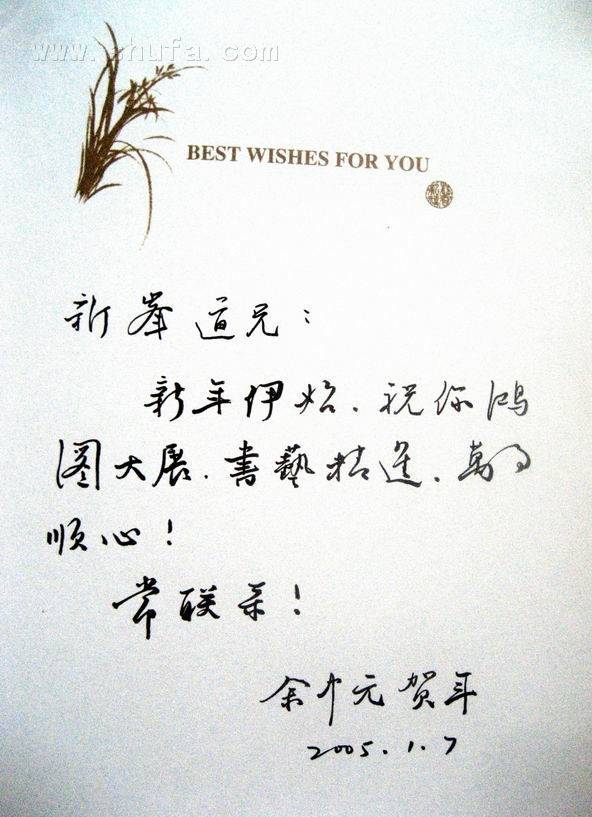 www.shufa.com
BEST WISHES FOR YOU
新峯道兄：
新年伊始、祝你鸿
图大展、書藝精進、萬事
顺心！
常联系！
余中元贺年
2005.1.7